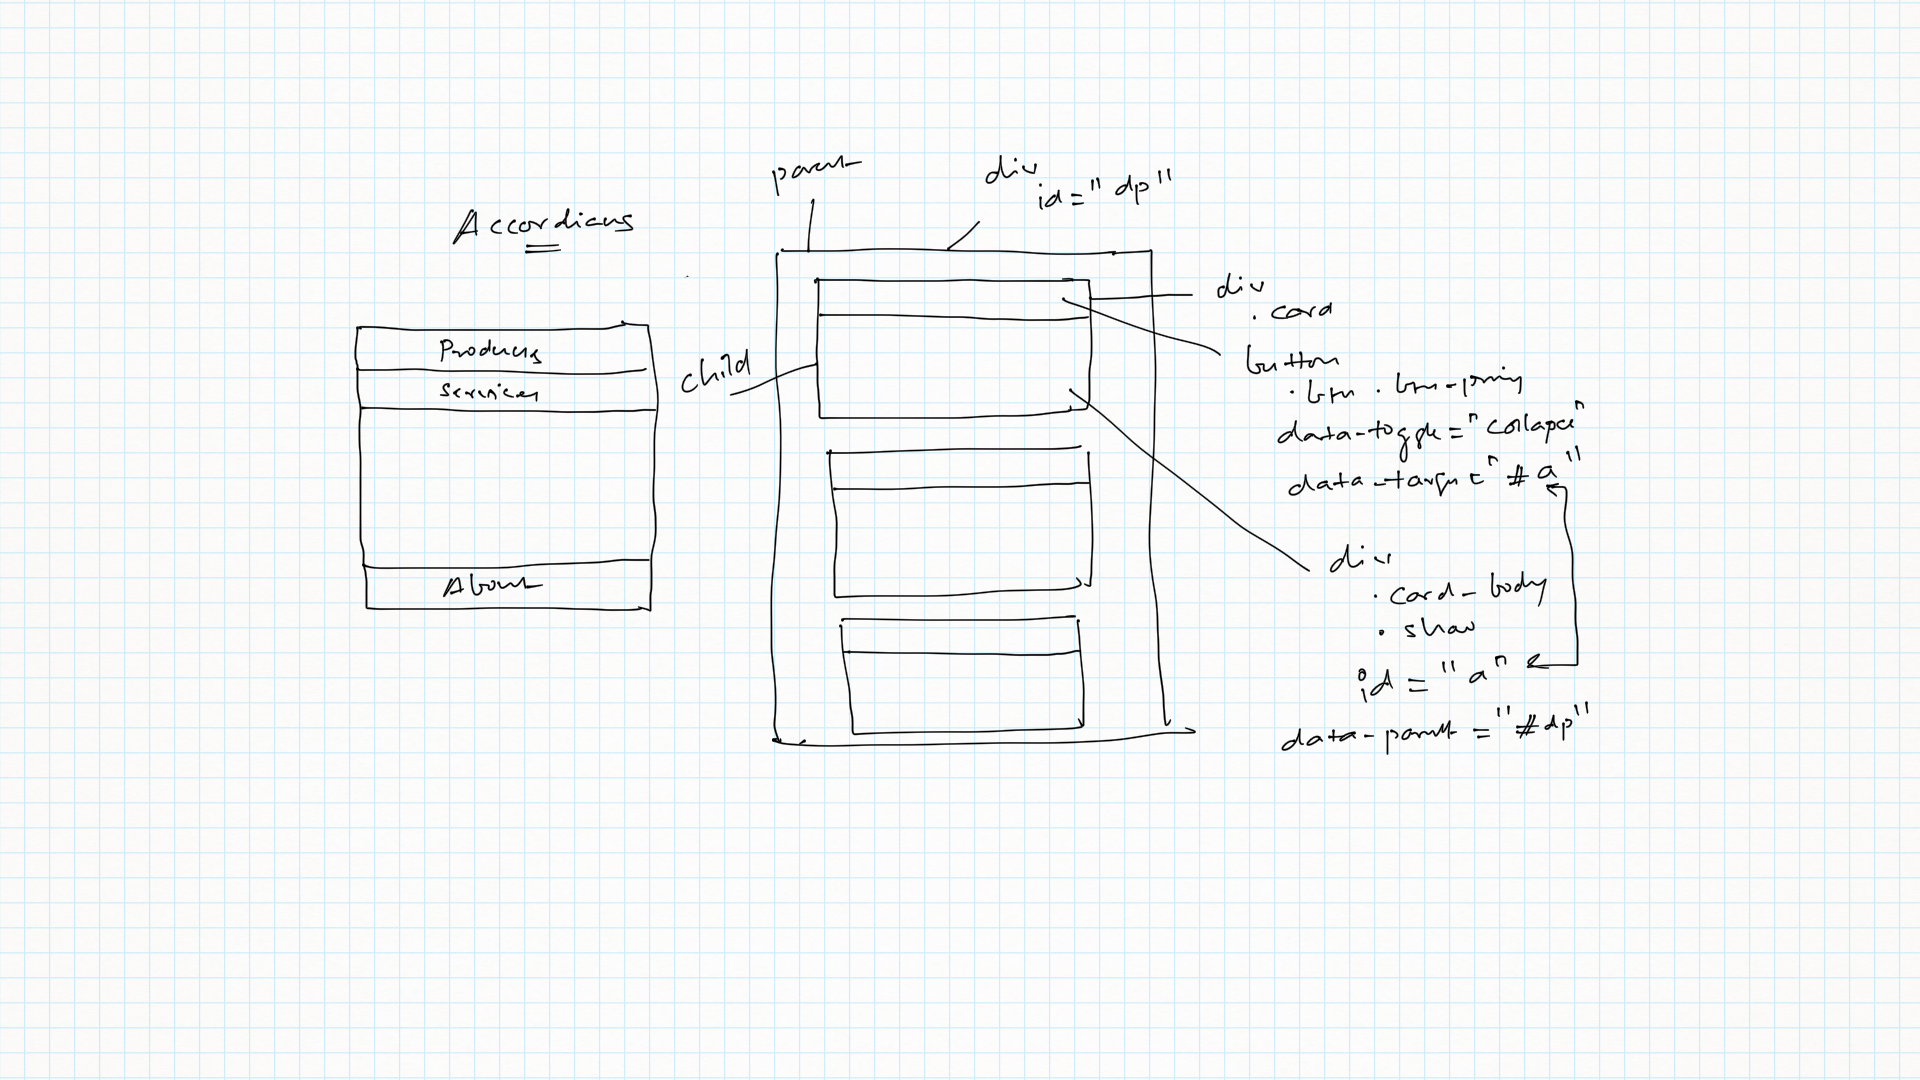 Accordians
Products
Services
About
parent
div
id = "dp"
child
div
. card
button
. btn . btn-primary
data-toggle = "collapse"
data-target "# a"
div
. card-body
. show
id = "a"
data-parent = "#dp"